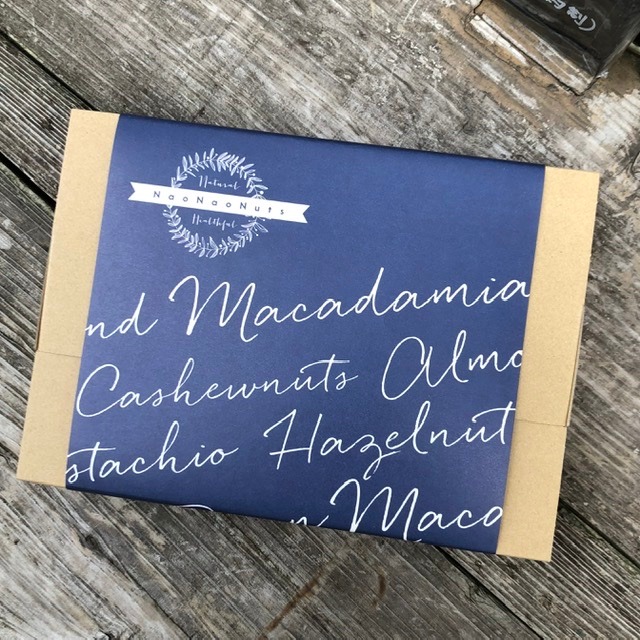 Natural
NaoNaoNuts
Healthful
nd Macadamia
Cashewnuts Almo
stachio Hazelnut
Maca